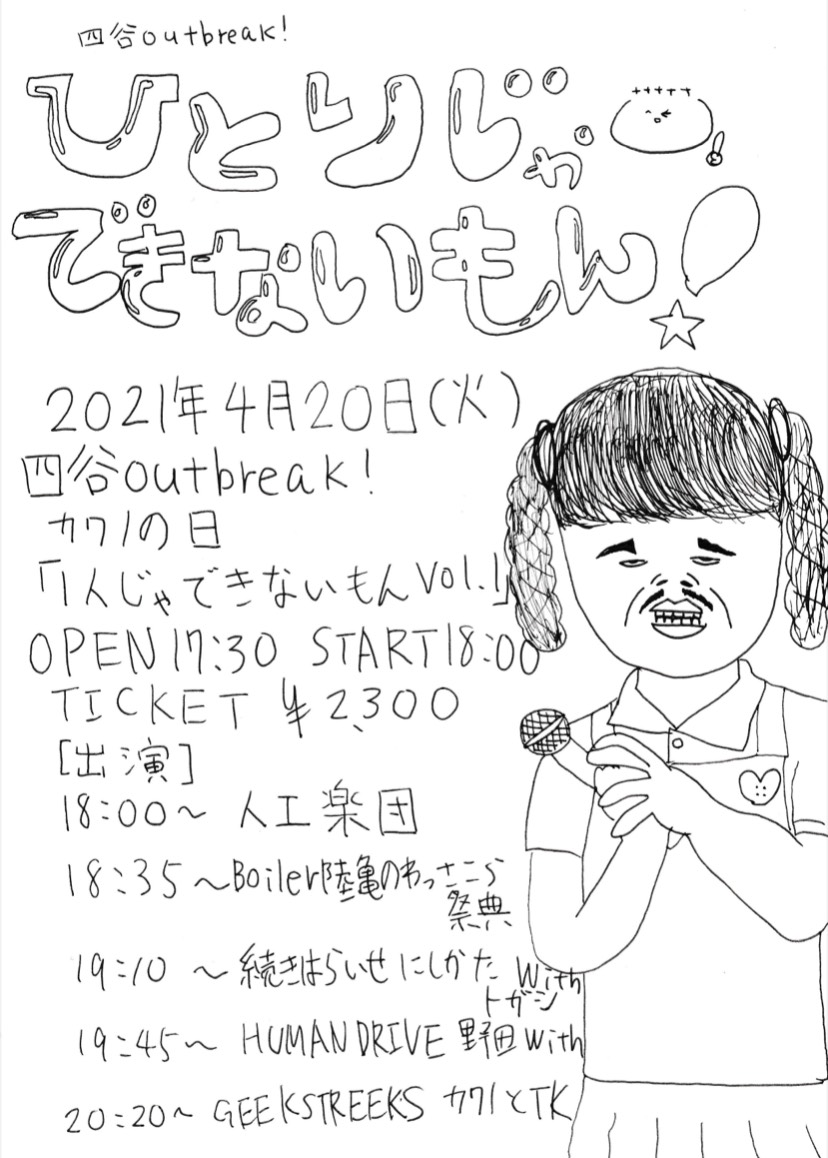 四谷outbreak!
ひとりじゃ
できないもん!
2021年4月20日(火)
四谷outbreak!
カワノの日
「1人じゃできないもんVol.1」
OPEN17:30 START18:00
TICKET ¥2,300
[出演]
18:00〜 人工楽団
18:35〜Boiler陸亀のわっさこら
祭典
19:10 〜 続きはらいせにしかた With
トガシ
19:45〜 HUMANDRIVE 野田With
20:20〜 GEEKSTREEKS カワノとTK